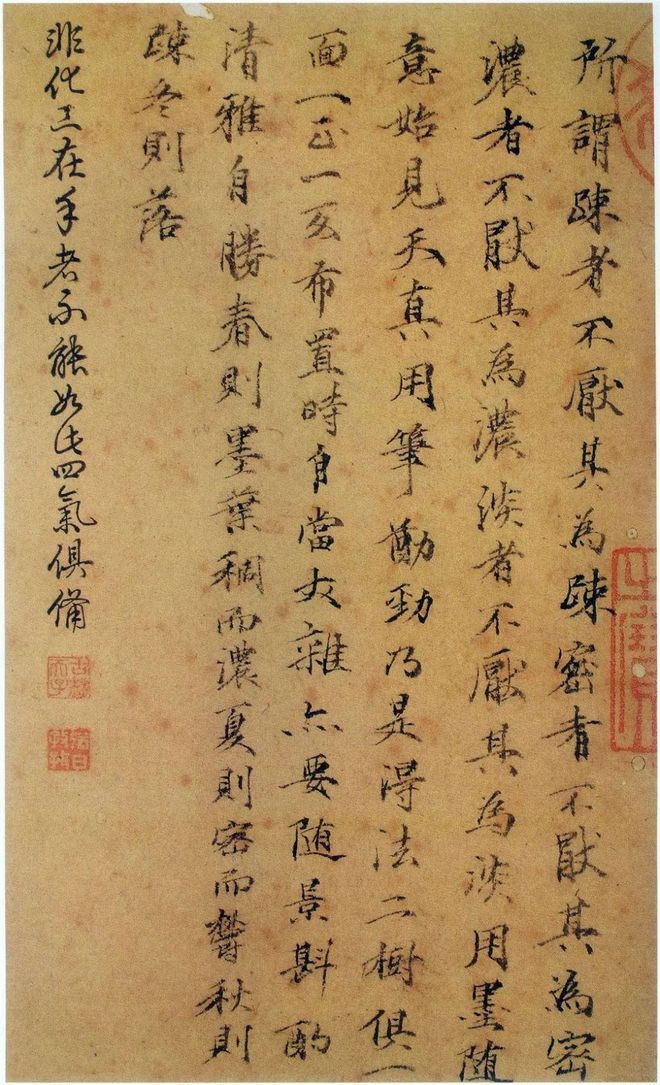 所謂踈者不厭其為踈密者不厭其為密
濃者不厭其為濃淡者不厭其為淡用墨隨
意始見天真用筆勁乃是淂法二樹俱一
面一正一布置時自當雜亦要随景斟酌
清雅自勝春則墨葉稠而濃夏則密而鬱秋則
踈冬則落
非化工在手者不能如此四氣俱備